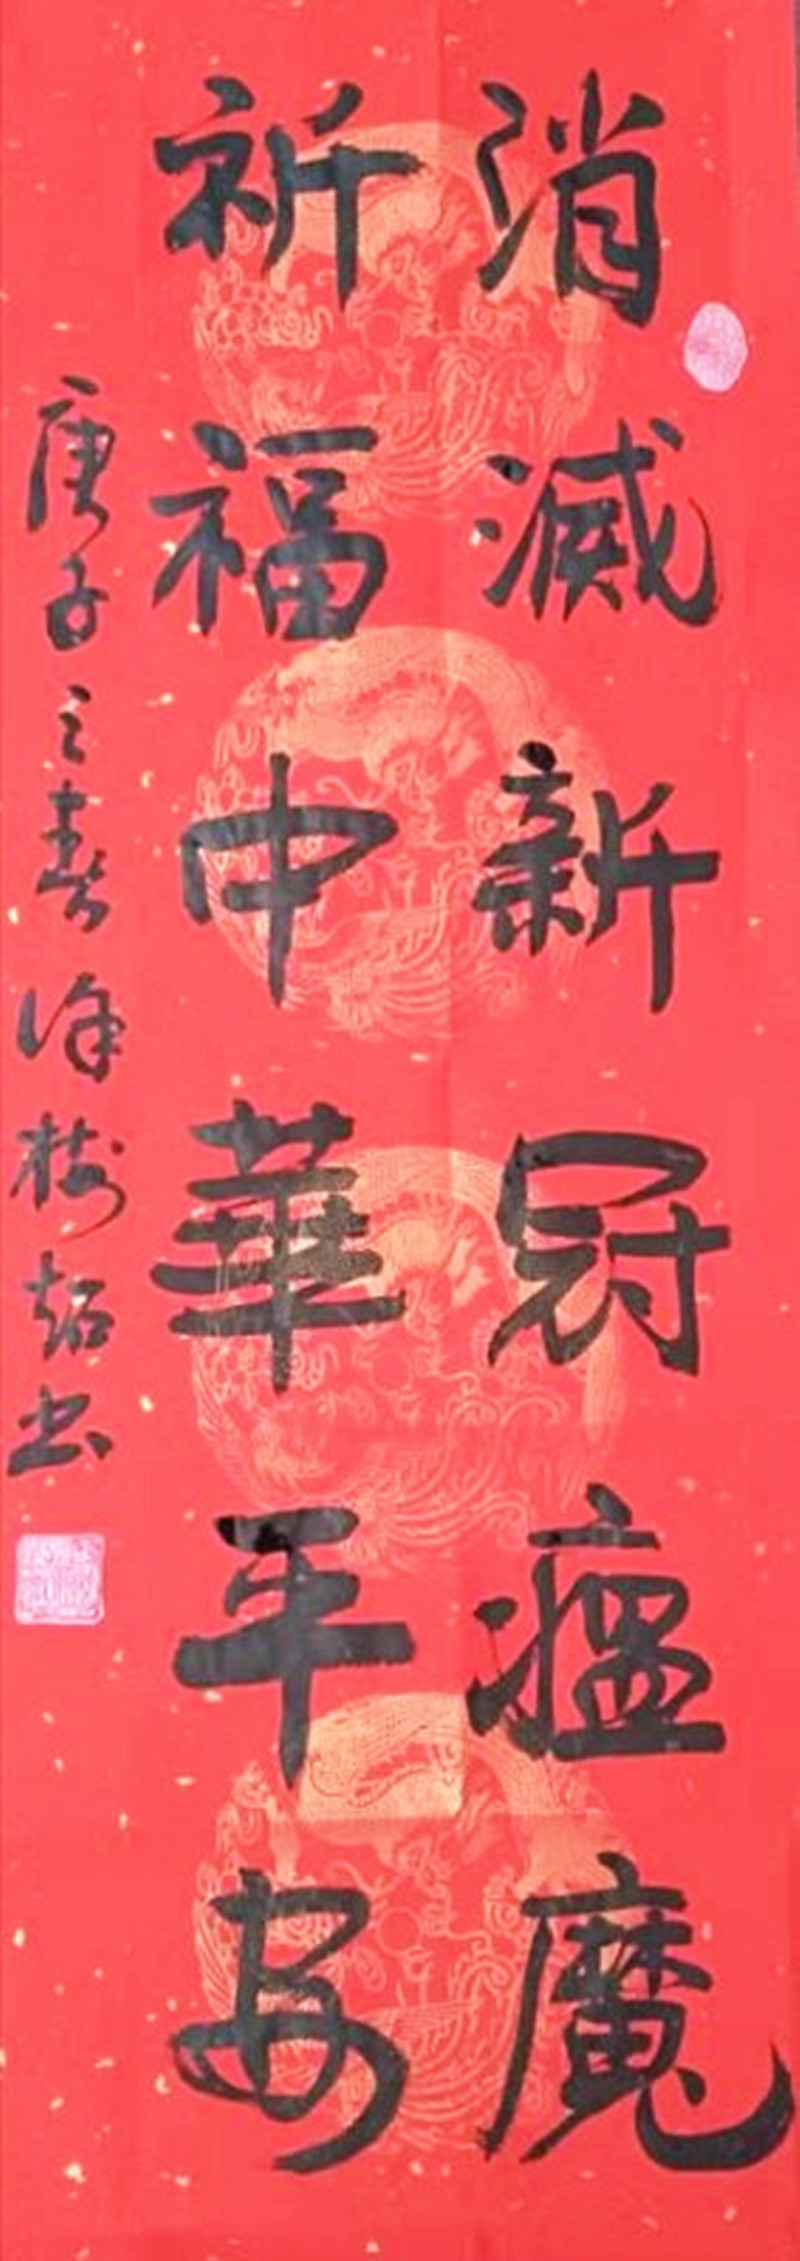 消滅新冠瘟魔
祈福中華平安
庚子之春徐樹超书